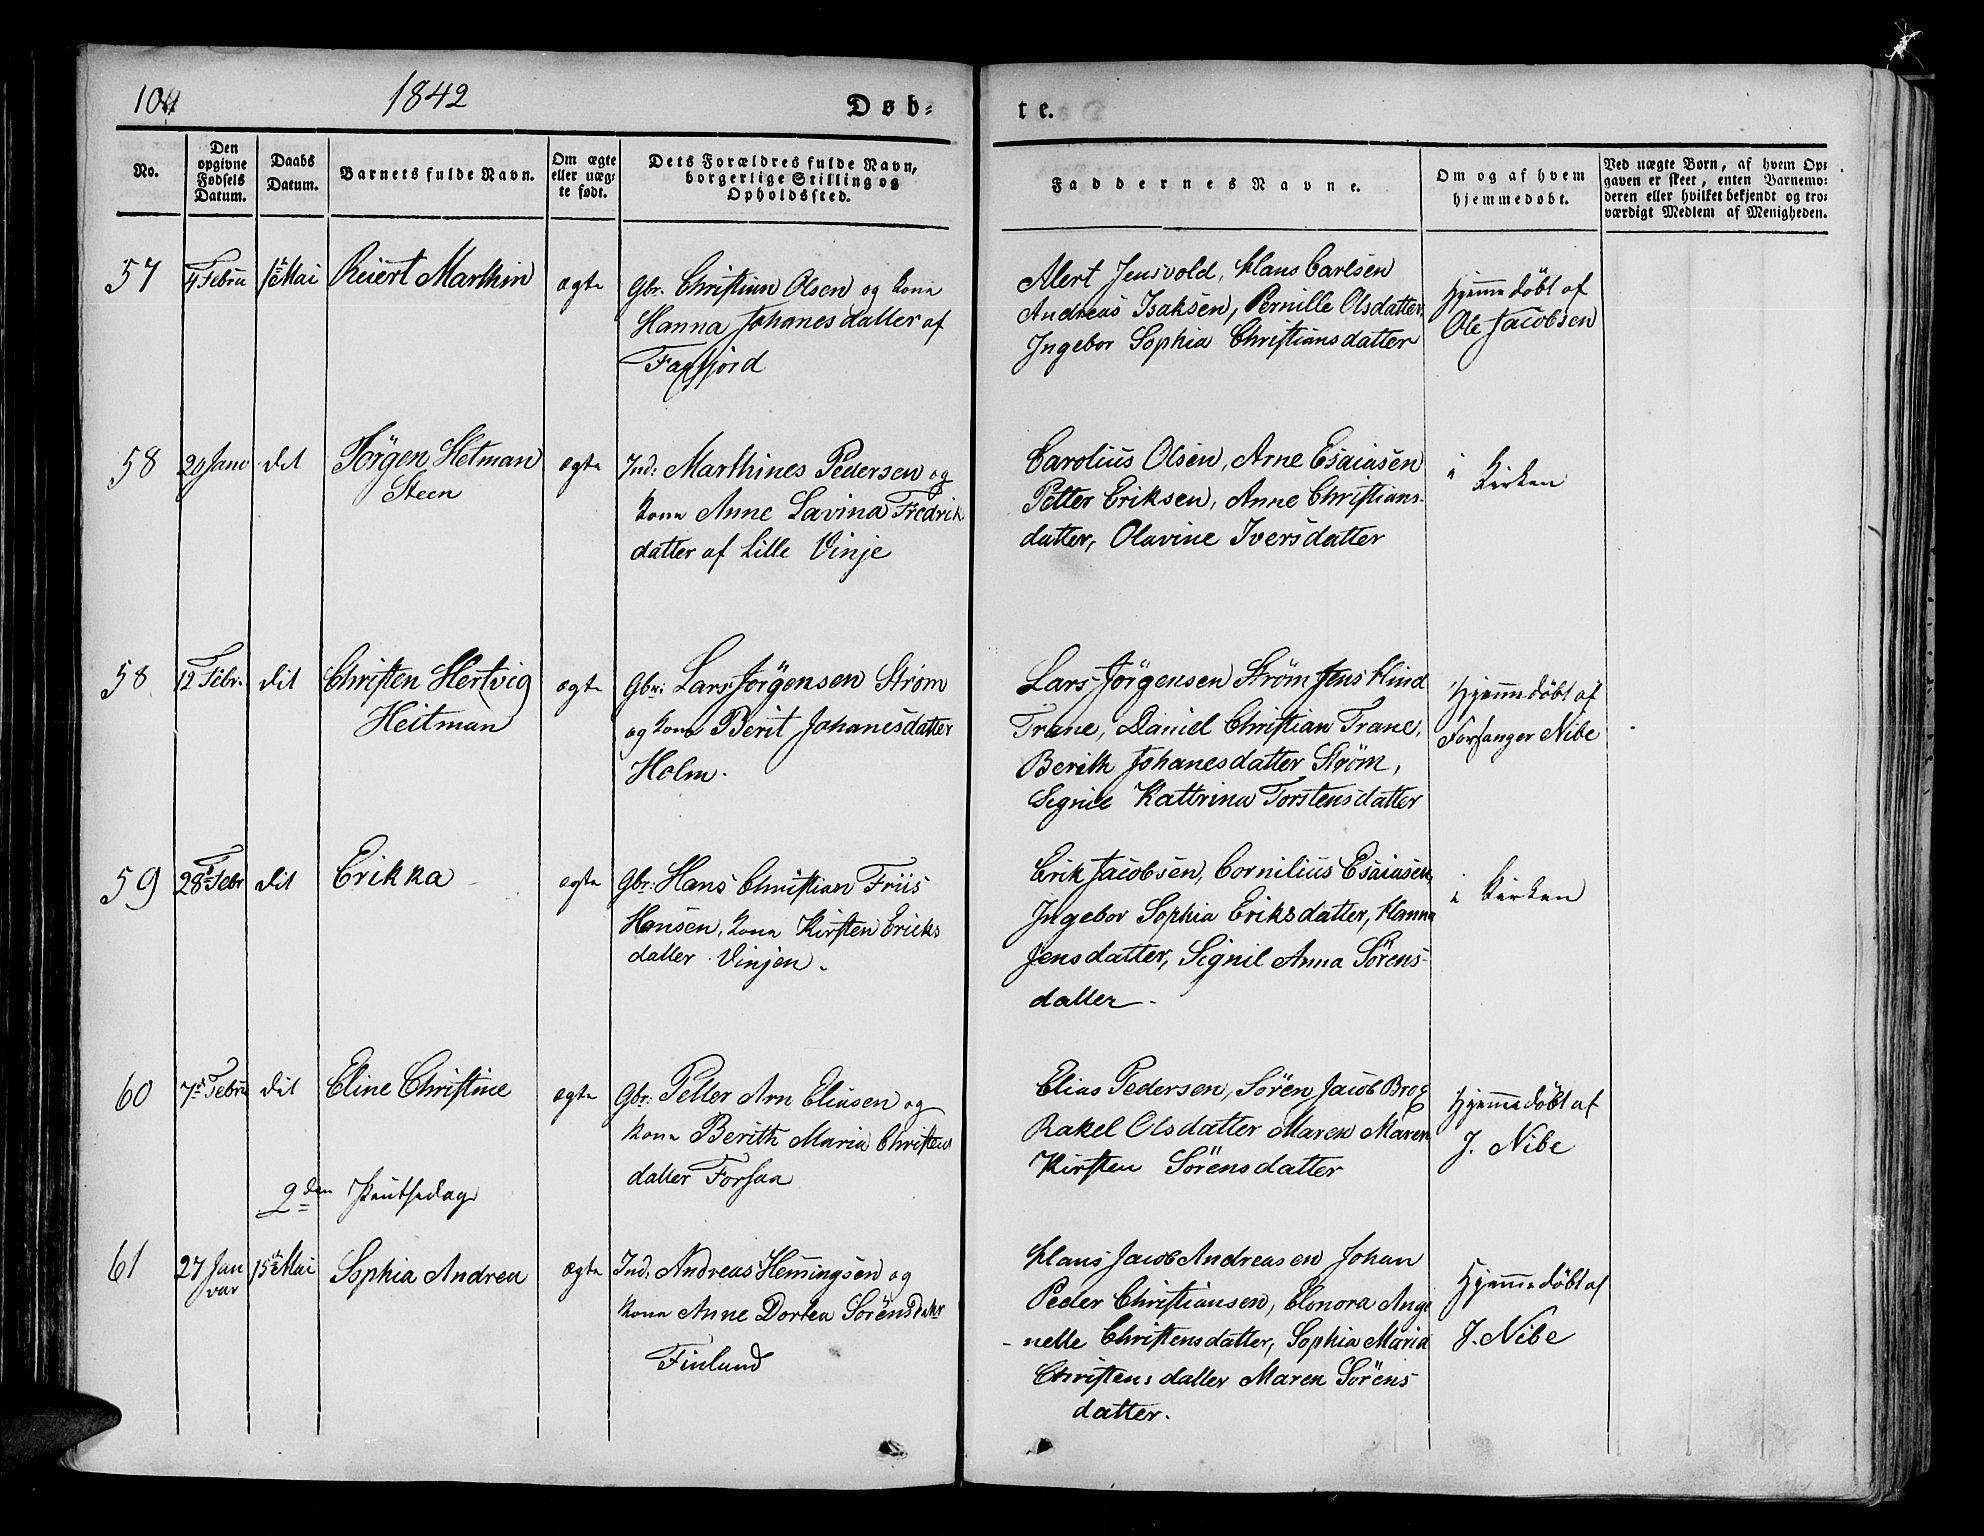 1842
Døb=
te.
No.
Den opgivne Fødsels Datum.
Daabs Datum.
Barnets fulde Navn.
Om ægte eller uæg- te født.
Dets Forældres fulde Navn, borgerlige Stilling og Opholdssted.
Faddernes Navne.
Om og af hvem hjemmedøbt.
Ved uægte Børn, af hvem Op- gaven er skeet, enten Barnemo- deren eller hvilket bekjendt og tro- værdigt Medlem af Menigheden.
57
4 Febru
1ste Mai
Reiert Marthin
ægte
Gbr. Christian Olsen og kone
Hanna Johanesdatter af
Fagfjord
Alert Jensvold, Klaus Carlsen
Andreas Isaksen, Pernille Olsdatter
Ingebor Sophia Christiansdatter
Hjemmedøbt af
Ole Jacobsen
58
20 Janu
dit
Jörgen Hetman
Steen
ægte
Ind: Marthines Pedersen og
kone Anne Lavina Fredrik
datter af Lille Vinje
Carolius Olsen, Arne Esaiasen
Petter Eriksen, Anne Christians-
datter, Olavine Iversdatter
i Kirken
58
12 Febr.
dit
Christen Hertvig
Heitman
ægte
Gbr: Lars Jörgensen Strøm
og kone Berit Johanesdatter
Holm.
Lars Jörgensen Strøm Jens Hind
Trane, Daniel Christian Trane,
Berith Johanesdatter Strøm,
Signie Kattrina Torstensdatter
Hjemmedöbt af
Forsanger Nibe
59
28de Febr
dit
Erikka
ægte
Gbr: Hans Christian Friis
Hansen, kone Kirsten Ericks
datter Vinjen.
Erik Jacobsen, Cornilius Esaiasen,
Ingebor Sophia Eriksdatter, Hanna
Jensdatter, Signil Anna Sörens-
datter.
i Kirken
60
7de Febru
dit
Eline Christine
ægte
Gbr: Petter Arn Eliasen og
kone Berith Maria Christens
datter Forsaa
Elias Pedersen, Sören Jacob Brox
Rakel Olsdatter Maren Maren
Kirsten Sörensdatter
Hjemmedøbt af
J. Nibe
2den Pintsedag
61
27 Jan
var
15de Mai
Sophia Andrea
ægte
Ind: Andreas Hemingsen og
kone Anne Dortea Sörensdatr
Finlund
Klaus Jacob Andreasen Johan
Peder Christiansen, Elonora Ange
-nelle Christensdatter, Sophia Maria
Christensdatter Maren Sörens
datter.
Hjemmedöbt af
J. Nibe